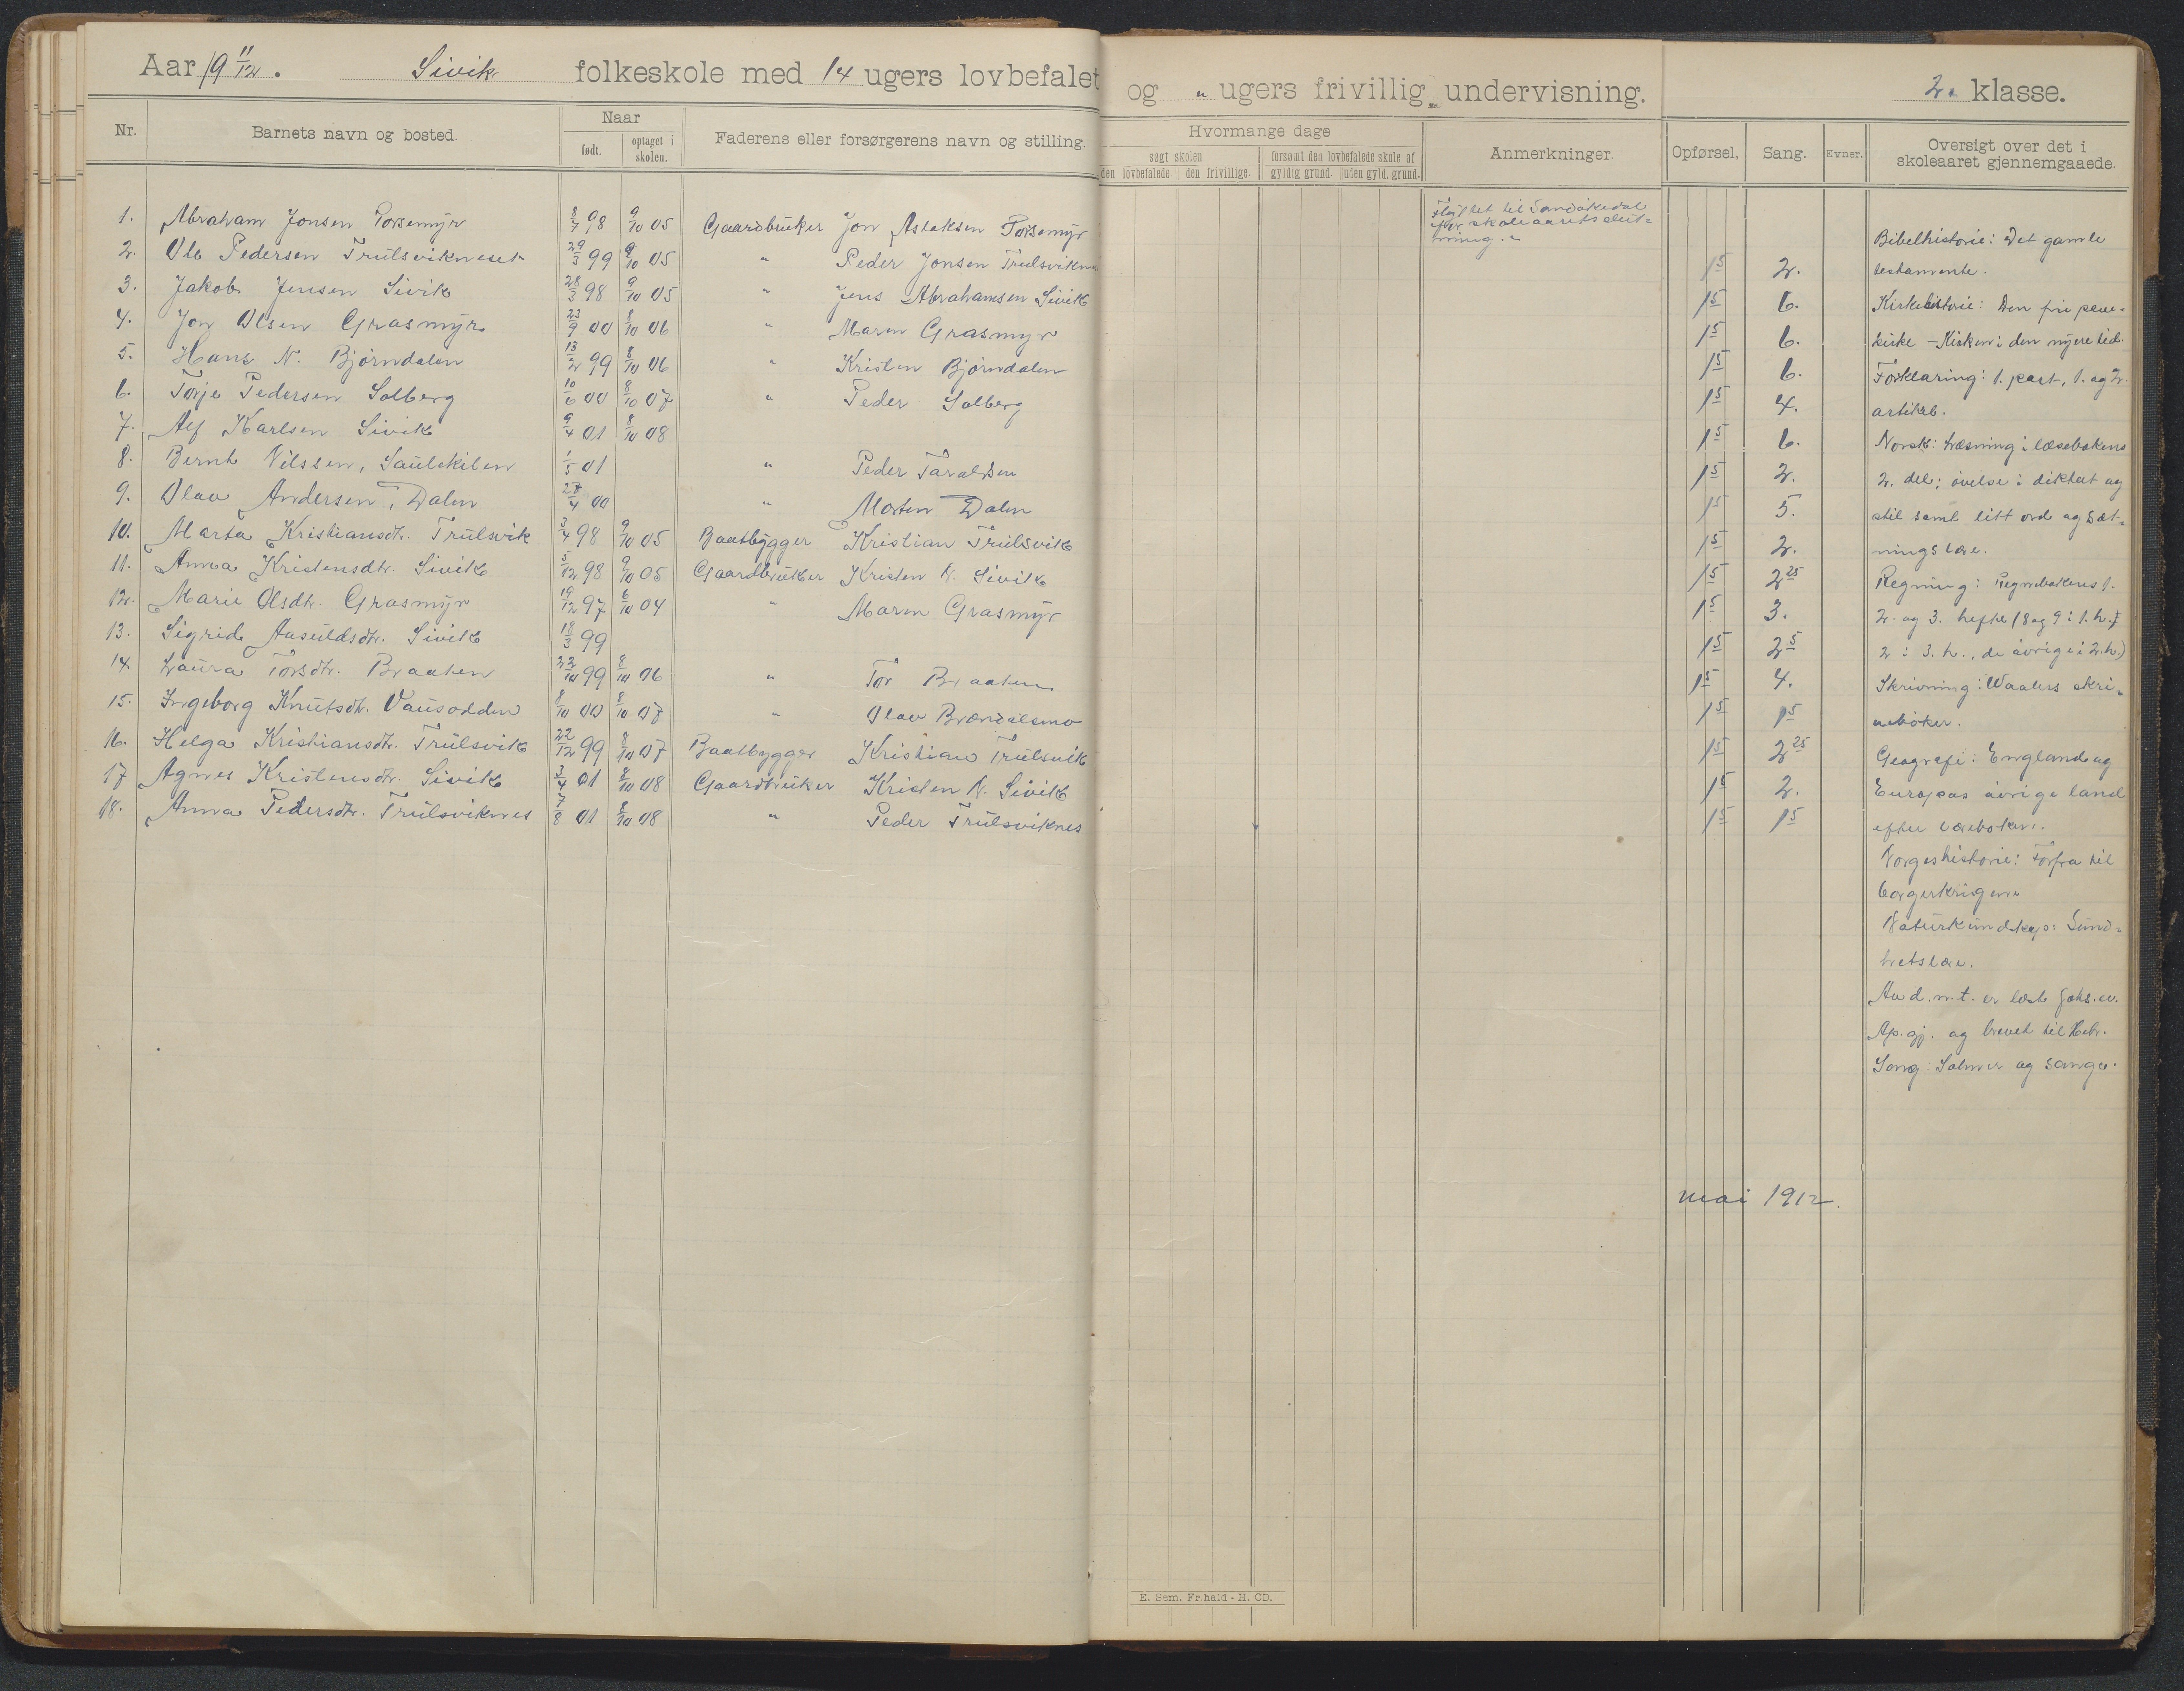 Aar 19 11/12. Sivik folkeskole med 14 ugers lovbefalet og " ugers frivillig undervisning. 2. klasse.
Nr. Barnets navn og bosted. Naar født. optaget i skolen. Faderens eller forsørgerens navn og stilling. Hvormange dage søgt skolen den lovbefalede den frivillige. forsømt den lovbefalede skole af gyldig grund. uden gyld. grund. Anmerkninger. Opførsel. Sang. Evner. Oversigt over det i skoleaaret gjennemgaaede.
1. Abraham Jonsen Porsemyr 8/7 98 9/10 05 Gaardbruker Jon Aslaksen Porsemyr
Flyttet til Sandøkedal
før skoleaarets slut-
2. Ole Pedersen Trulsvikneset 29/3 99 9/10 05 " Peder Jonsen Trulsvikn 15 2.
3. Jakob Jensen Sivik 28/3 98 9/10 05 " Jens Abrahamsen Sivik 15 6.
4. Jon Olsen Grasmyr 23/9 00 8/10 06 " Maren Grasmyr 15 6.
5. Hans N. Bjørndalen 13/2 99 8/10 06 " Kristen Bjørndalen 15 6.
6. Torje Pedersen Solberg 10/6 00 8/10 07 " Peder Solberg 15 4.
7. Alf Karlsen Sivik 9/4 01 8/10 08 15 6.
8. Bernt Nilssen, Saulekilen 1/5 01 " Peder Taraldsen 15 2.
9. Olav Andersen, Dalen 28/4 00 " Morten Dalen 15 5.
10. Marta Kristiansdtr. Trulsvik 3/4 98 9/10 05 Baatbygger Kristian Trulsvik 15 2.
11. Anna Kristensdtr. Sivik 5/12 98 9/10 05 Gaardbruker Kristen N. Sivik 15 2 25
12. Marie Olsdtr. Grasmyr 19/12 97 6/10 04 " Maren Grasmyr 15 3.
13. Sigrid Aasuldsdtr. Sivik 18/3 99 15 25
14. Laura Torsdtr. Braaten 22/10 99 8/10 06 " Tor Braaten 15 4.
15. Ingeborg Knutsdtr. Vausodden 8/10 00 8/10 07 " Olav Brændalsmo 15 15
16. Helga Kristiansdtr. Trulsvik 22/12 99 8/10 07 Baatbygger Kristian Trulsvik 15 2 25
17 Agnes Kristensdtr. Sivik 3/4 01 8/10 08 Gaardbruker Kristen N. Sivik 15 2.
18. Anna Pedersdtr. Trulsviknes 7/8 01 8/10 08 " Peder Trulsviknes 15 15
Bibelhistorie: Det gamle
testamente.
Kirkehistorie: Den fri pave-
kirke - Kirken i den nyere tid.
Forklaring: 1. part, 1. og 2.
artikel.
Norsk: Læsning i læsebokens
2. del; øvelse i diktat og
stil samt litt ord og sæt-
ningslære.
Regning: Regnebokens 1.
2. og 3. hefte (8 og 9 i 1. h.,
2 i 3. h., de øvrige i 2. h.)
Skrivning: Waalers skri-
vebøker.
Geografi: England og
Europas øvrige land
efter læreboken.
Norgeshistorie: Forfra til
borgerkrigene
Naturkundskap: Sund-
hetslære.
Av d. n. t. er læst Johs. ev.
Ap. gj. og brevet til Hebr.
Sang: Salmer og sange.
mai 1912.
E. Sem. Fr.hald - H. CD.